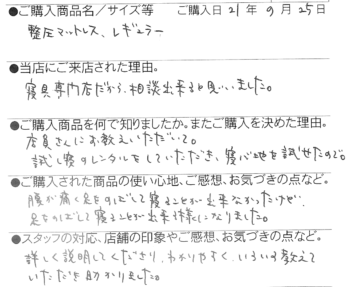 ●ご購入商品名／サイズ等 ご購入日 21 年 9 月 25 日
整圧マットレス、レギュラー
●当店にご来店された理由。
寝具専門店だから、相談出来ると思いました。
●ご購入商品を何で知りましたか。またご購入を決めた理由。
店員さんにお教えいただいて。
試し寝のレンタルをしていただき、寝心地を試せたので。
●ご購入された商品の使い心地、ご感想、お気づきの点など。
腰が痛く足をのばして寝ることが出来なかったけど、
足をのばして寝ることが出来る様になりました。
●スタッフの対応、店舗の印象やご感想、お気づきの点など。
詳しく説明してくださり、わかりやすく、いろいろ教えて
いただき助かりました。